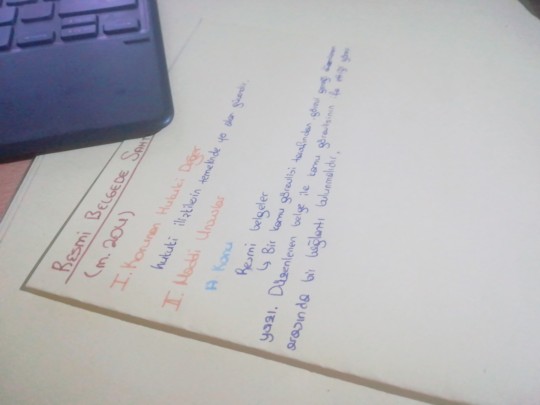 RESMİ BELGEDE SAH
(m. 204)
I. Korunan Hukuki Değer
hukuki ilişkilerin temelinde ye alan güvendi.
II. Maddi Unsurlar
A. Konu
Resmi belgeler
↳ Bir kamu görevlisi tarafından görevi gereği
yazılı. Düzenlenen belge ile kamu görevlisinin
arasında bir bağlantı bulunmalıdır.